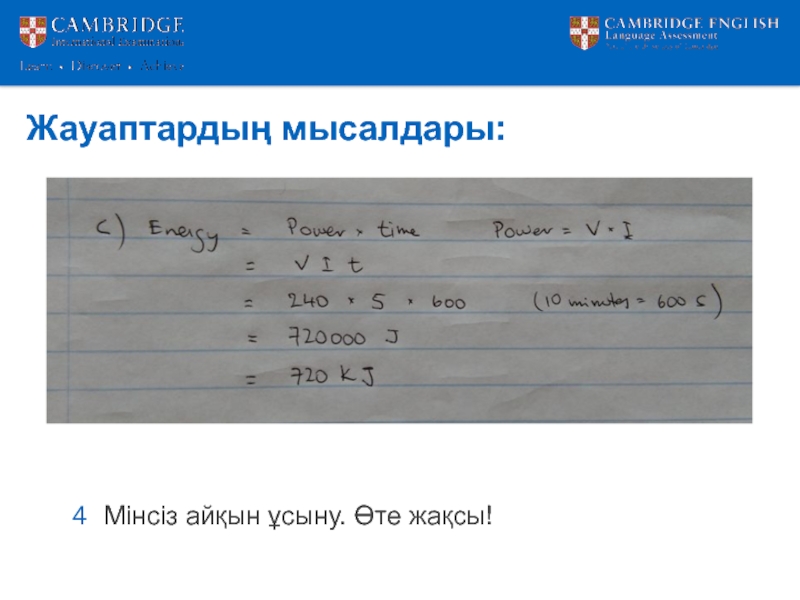 CAMBRIDGE
International Examinations
Learn • Discover • Achieve
CAMBRIDGE ENGLISH
Language Assessment
Жауаптардың мысалдары:
c) Energy = Power × time Power = V × I
= V I t
= 240 × 5 × 600 (10 minutes = 600 s)
= 720000 J
= 720 KJ
4 Мінсіз айқын ұсыну. Өте жақсы!